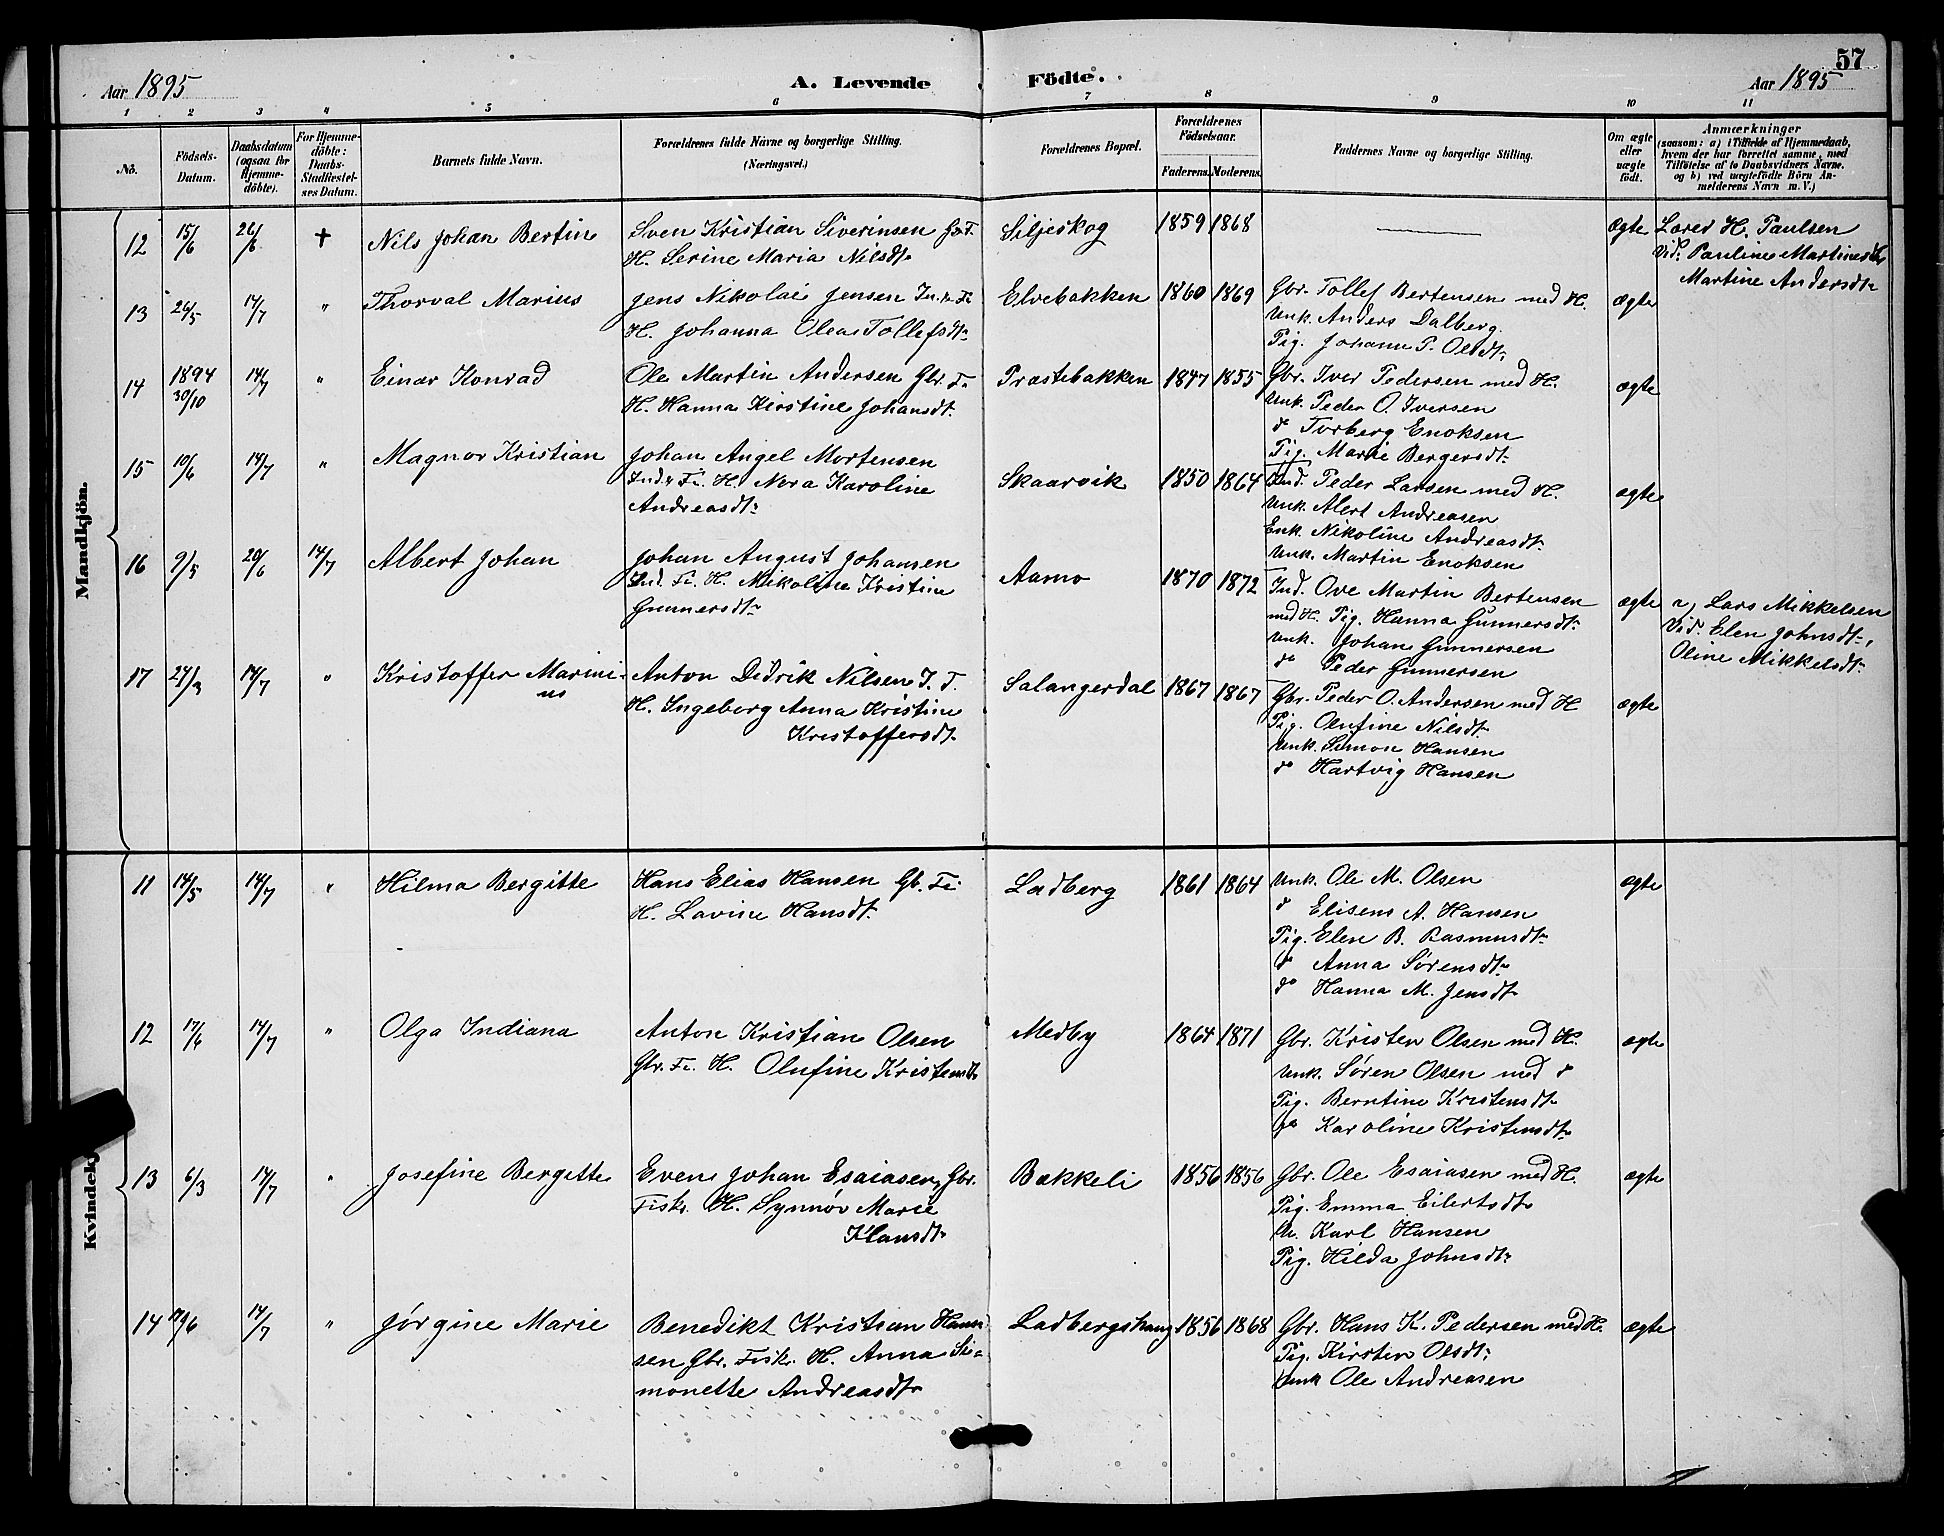 57
Aar 1895
A. Levende Födte.
Aar 1895
1 2 3 4 5 6 7 8 9 10 11
No.
Födsels-Datum.
Daabsdatum (ogsaa for Hjemmedöbte).
For Hjemmedöbte: Daabs-Stadfæstelses Datum.
Barnets fulde Navn.
Forældrenes fulde Navne og borgerlige Stilling.
(Næringsvei.)
Forældrenes Bopæl.
Forældrenes Födselsaar.
Faderens. Moderens.
Faddernes Navne og borgerlige Stilling.
Om ægte eller uægte födt.
Anmærkninger
(saasom: a) i Tilfælde af Hjemmedaab,
hvem der har forrettet samme, med
Tilföielse af to Daabsvidners Navne.
og b) ved uægtefödte Börn An-
melderens Navn m. V.)
Mandkjön.
12 15/6 26/6 † Nils Johan Bertin
Sven Kristian Siverinsen Gbr. F.
H. Serine Maria Nilsdt.
Siljeskog 1859 1868
ægte
Lærer H. Paulsen
Vid. Pauline Martinesdt.
Martine Andersdt.
13 26/5 14/7 " Thorval Marius
Jens Nikolai Jensen In. & Fi
H. Johanna Olea Tollefsdt.
Elvebakken 1860 1869
Gbr. Tollef Bertensen med H.
Unk. Anders Dalberg.
Pig. Johanna P. Olsdt.
ægte
14 1894 30/10 14/7 " Einar Konrad
Ole Martin Andersen Gbr. F.
H. Hanna Kirstine Johansdt.
Præstebakken 1847 1855
Gbr. Iver Pedersen med H.
Unk. Peder O. Iversen
do Torberg Enoksen
Pig. Marie Bergersdt.
ægte
15 10/6 14/7 " Magnor Kristian
Johan Angel Mortensen
Ind. & Fi. H. Nora Karoline
Andreasdt.
Skaarvik 1850 1864
Ind. Peder Larsen med H.
Unk. Alert Andreasen
Enk. Nikoline Andreasdt.
Unk. Martin Enoksen
ægte
16 9/5 20/6 14/7 Albert Johan
Johan August Johansen
Ind. Fi. H. Nikoline Kristine
Gunnersdt.
Aamo 1870 1872
Ind. Ove Martin Bertensen
med H. Pig. Hanna Gunnersdt.
Unk. Johan Gunnersen
do Peder Gunnersen
ægte
a) Lars Mikkelsen
Vid. Elen Johnsdt.,
Oline Mikkelsdt.
17 27/3 14/7 " Kristoffer Marini-
us
Anton Didrik Nilsen I. F.
H. Ingeborg Anna Kristine
Kristoffersdt.
Salangerdal 1867 1867
Gbr. Peder O. Andersen med H
Pig. Olufine Nilsdt.
Unk. Simon Hansen
do Hartvig Hansen
ægte
Kvindekj
11 14/5 14/7 " Hilma Bergitte
Hans Elias Hansen Gb. Fi.
H. Lavine Hansdt.
Ladberg 1861 1864
Unk. Ole M. Olsen
do Elisens A. Hansen
Pig. Elen B. Rasmusdt.
do Anna Sørensdt.
do Hanna M. Jensdt.
ægte
12 17/6 14/7 " Olga Indiana
Anton Kristian Olsen
Gbr. Fi. H. Olufine Kristensdt.
Medby 1864 1871
Gbr. Kristen Olsen med H.
Unk. Søren Olsen med do
Pig. Berntine Kristensdt.
do Karoline Kristensdt.
ægte
13 6/3 14/7 " Josefine Bergitte
Even Johan Esaiasen, Gbr.
Fisk. H. Synnøv Marie
Klausdt.
Bakkeli 1856 1856
Gbr. Ole Esaiasen med H.
Pig. Emma Eilertsdt.
U. Karl Hansen
Pig. Hilda Johnsdt.
ægte
14 17/6 14/7 " Jørgine Marie
Benedikt Kristian Han-
sen Gbr. Fisk. H. Anna Si-
monette Andreasdt.
Ladbergshaug 1856 1868
Gbr. Hans K. Pedersen med H.
Pig. Kirstin Olsdt.
Unk Ole Andreasen
ægte